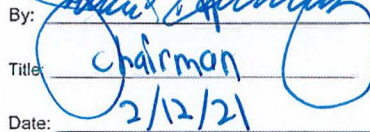 By:
Title: Chairman
Date: 2/12/21